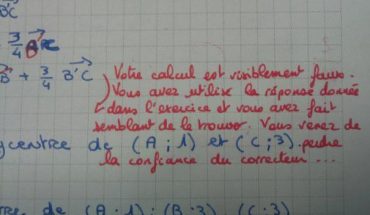 B'C
3/4
B + 3/4 B'C
Votre calcul est visiblement faux.
Vous avez utilisé la réponse donnée
dans l'exercice et vous avez fait
semblant de la trouver. Vous venez de
perdre
la confiance du correcteur ...
centre de (A ; 1) et (C ; 3).
de (A ; 1) ; (B ; 3) (C ; 3)